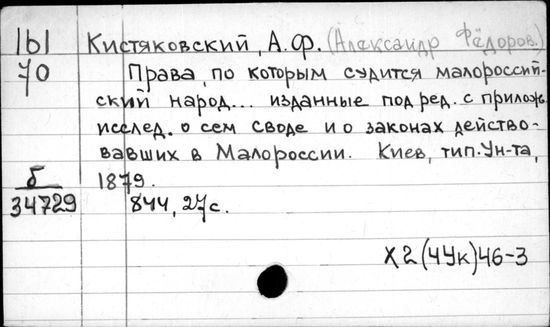 161 Кистяковский, А.Ф. (Александр Фёдоров.)
70 Права, по которым судится малороссий-
ский народ... изданные под ред. с прилож.
исслед. о сем своде и о законах действо-
вавших в Малороссии. Киев, тип. Ун-та,
б 1879.
34729 844, 27с.
X2(4Ук)46-3